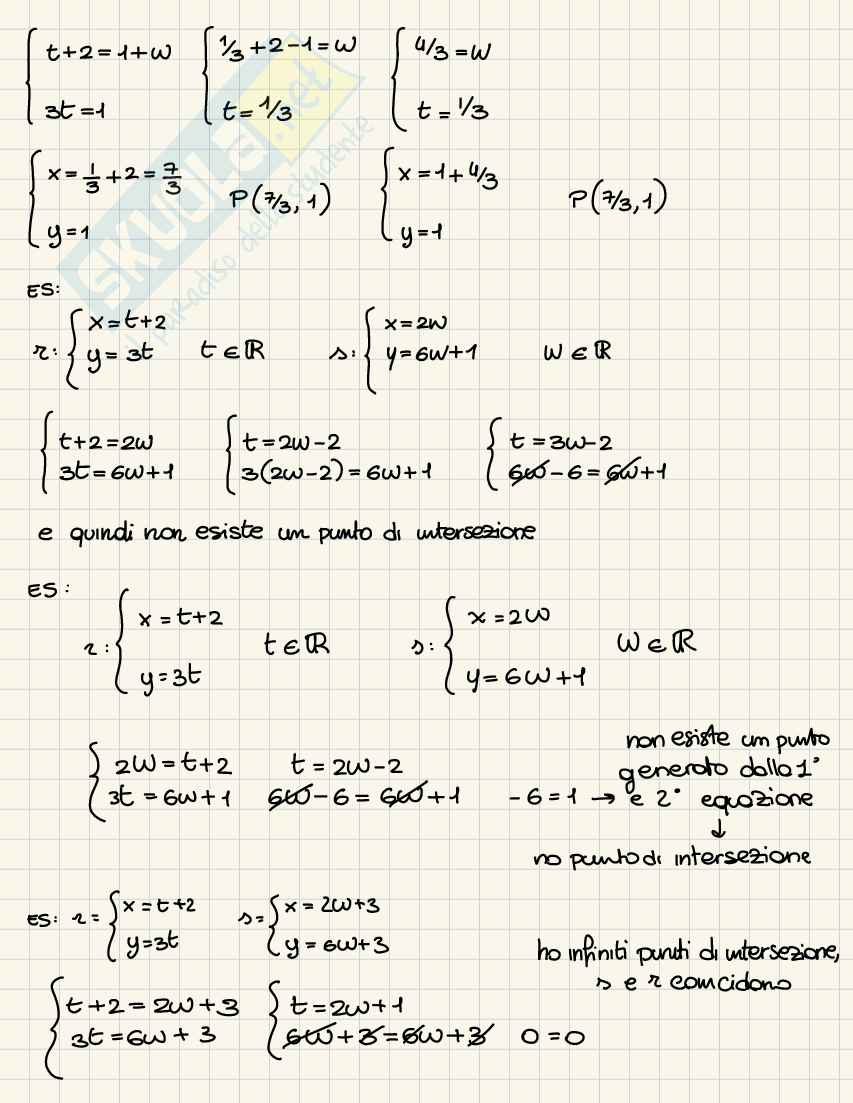 t+2=1+w   1/3+2-1=w   4/3=w
3t=1   t=1/3   t=1/3
x=1/3+2=7/3   P(7/3,1)   x=1+4/3   P(7/3,1)
y=1   y=1
SKUOLA.net
il paradiso dello studente
ES:
r: x=t+2   t∈ℝ   s: x=2w   w∈ℝ
y=3t   y=6w+1
t+2=2w   t=2w-2   t=3w-2
3t=6w+1   3(2w-2)=6w+1   6w-6=6w+1
e quindi non esiste un punto di intersezione
ES:
r: x=t+2   t∈ℝ   s: x=2w   w∈ℝ
y=3t   y=6w+1
2w=t+2   t=2w-2
3t=6w+1   6w-6=6w+1   -6=1 →
non esiste un punto
generato dalla 1°
e 2° equazione
↓
no punto di intersezione
ES: r= x=t+2   s= x=2w+3
y=3t   y=6w+3
ho infiniti punti di intersezione,
s e r coincidono
t+2=2w+3   t=2w+1
3t=6w+3   6w+3=6w+3   0=0